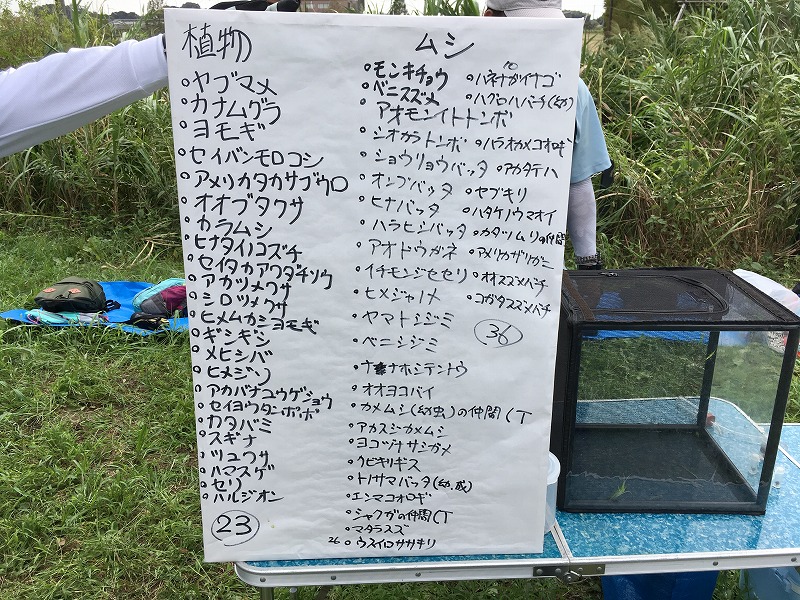 植物
○ヤブマメ
○カナムグラ
○ヨモギ
○セイバンモロコシ
○アメリカタカサブウロ
○オオブタクサ
○カラムシ
○ヒナタイノコズチ
○セイタカアワダチソウ
○アカツメクサ
○シロツメクサ
○ヒメムカシヨモギ
○ギシギシ
○メヒシバ
○ヒメジソ
○アカバナユウゲショウ
○セイヨウタンポポ
○カタバミ
○スギナ
○ツユクサ
○ハマスゲ
○セリ
○ハルジオン
23
ムシ
○モンキチョウ
○ベニスズメ
アオモンイトトンボ
○シオカラトンボ
○ショウリョウバッタ
○オンブバッタ
○ヒナバッタ
○ハラヒシバッタ
○アオドウガネ
○イチモンジセセリ
○ヒメジャノメ
○ヤマトシジミ
○ベニシジミ
○ナナホシテントウ
○オオヨコバイ
○カメムシ(幼虫)の仲間(T
○アカスジカメムシ
○ヨコヅナサシガメ
○クビキリギス
○トノサマバッタ(幼,成)
○エンマコオロギ
○シャクガの仲間(T
○マダラスズ
26 ○ウスイロササキリ
○ハネナガイナゴ
○ハグロハバチ(幼)
○ハラオカメコオロギ
○アカタテハ
○ヤブキリ
○ハタケノウマオイ
○カタツムリの仲間
○アメリカザリガニ
○オオスズメバチ
○コガタスズメバチ
36